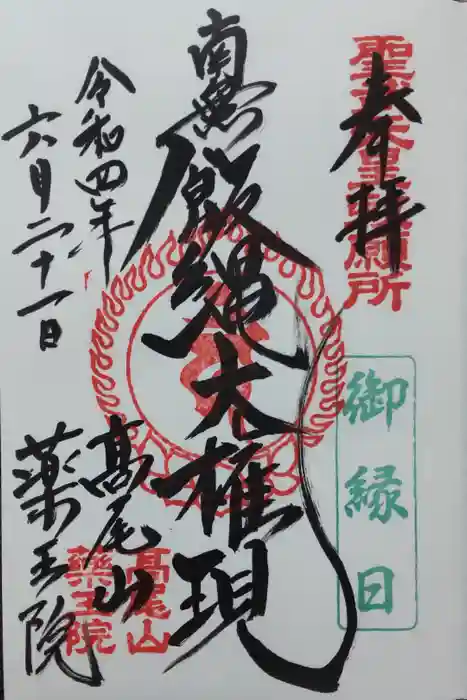 奉拝
聖武天皇勅願所
御縁日
南無飯縄大権現
令和四年
六月二十一日
高尾山
薬王院
高尾山
薬王院